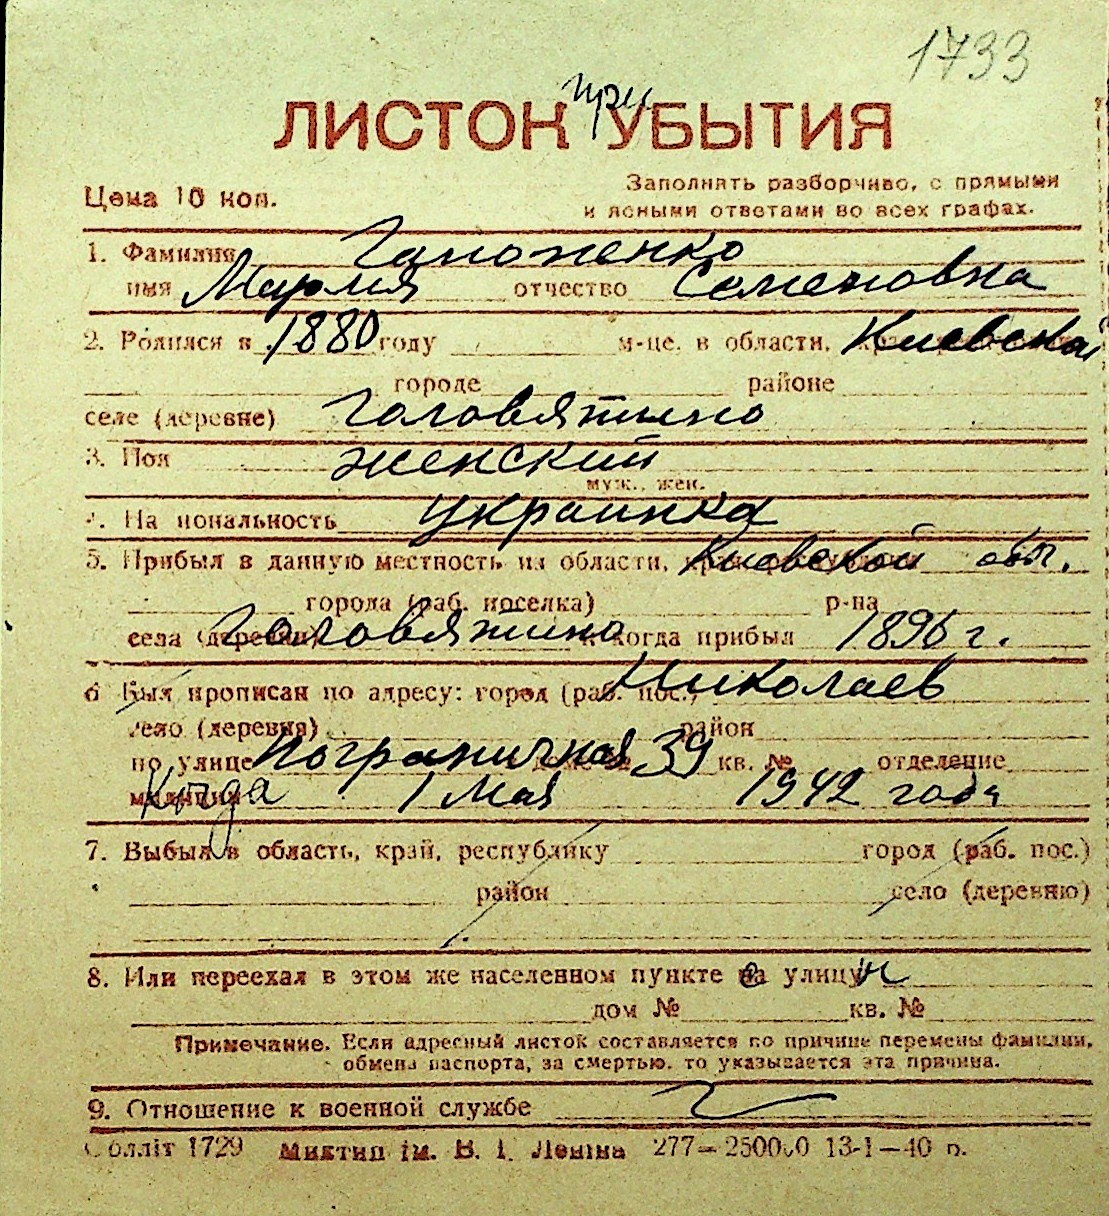 1733
при
ЛИСТОК УБЫТИЯ
Цена 10 коп.
Заполнять разборчиво, с прямыми
и ясными ответами во всех графах.
1. Фамилия Гапоненко
имя Мария отчество Семеновна
2. Родился в 1880 году м-це, в области, Киевская
городе районе
селе (деревне) Головятино
3. Пол женский
муж., жен.
4. Национальность украинка
5. Прибыл в данную местность из области, Киевской обл.
города (раб. поселка) р-на
села (деревни) Головятино и когда прибыл 1896 г.
6 Был прописан по адресу: город (раб. пос.) Николаев
село (деревня) район
по улице Пограничная 39 кв. № отделение
милиции Когда 1 Мая 1942 года
7. Выбыл в область, край, республику город (раб. пос.)
район село (деревню)
8. Или переехал в этом же населенном пункте с улицы
дом № кв. №
Примечание. Если адресный листок составляется по причине перемены фамилии,
обмена паспорта, за смертью, то указывается эта причина.
9. Отношение к военной службе
Обліт 1729 Миктип ім. В. І. Леніна 277—250000 13-1—40 р.